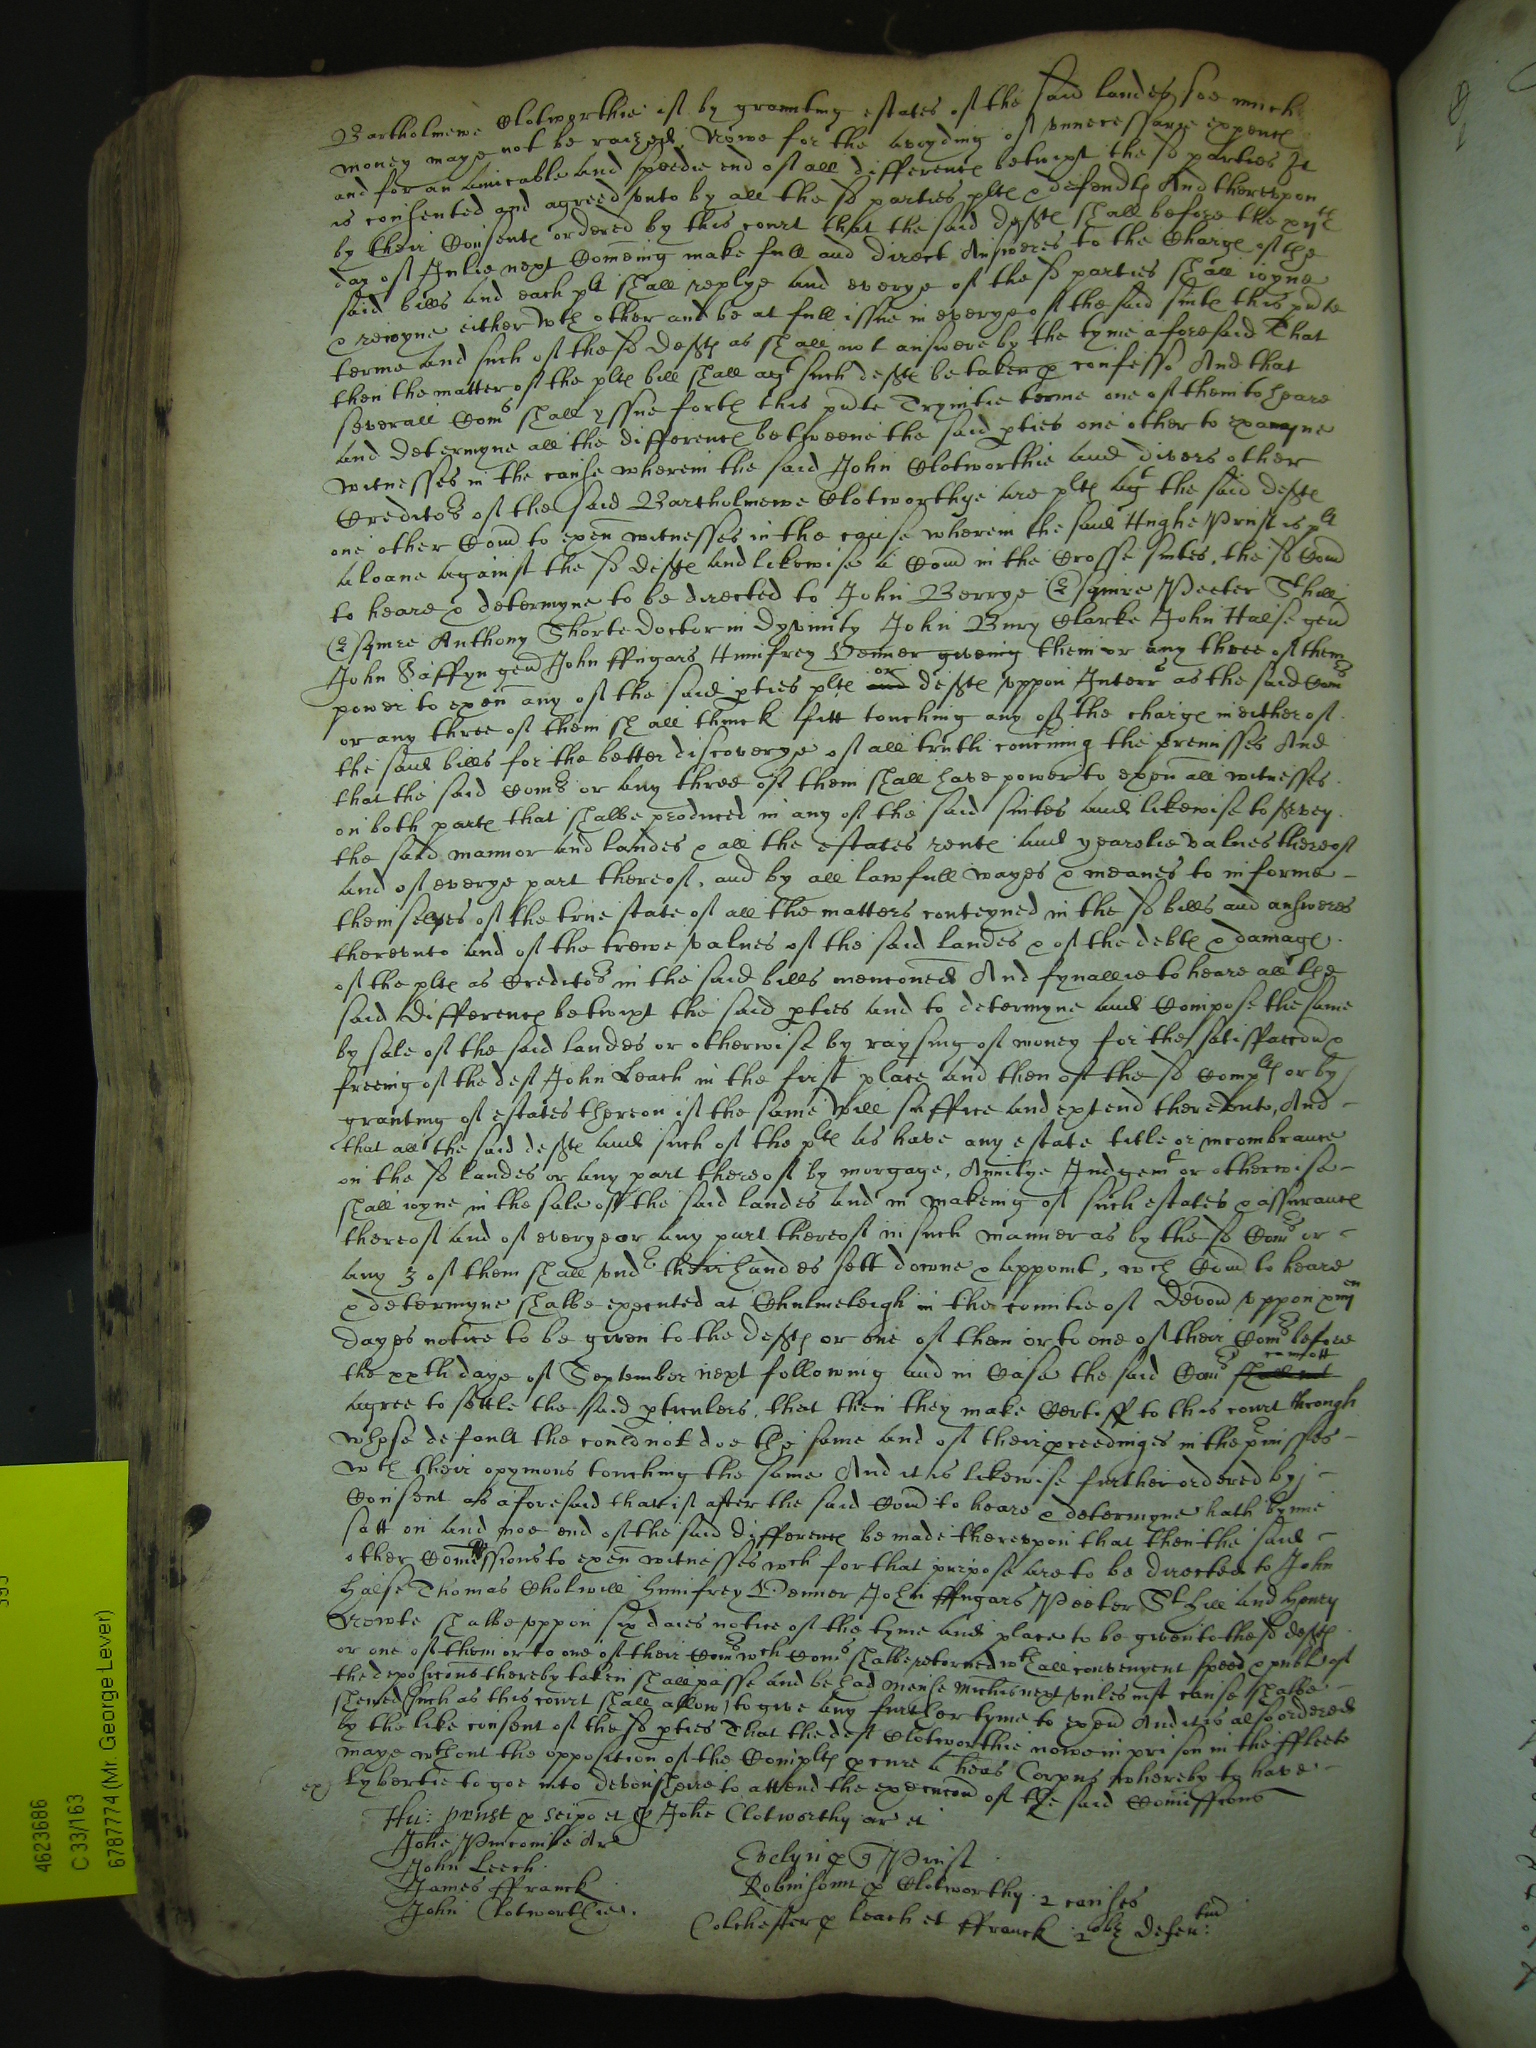 Bartholmewe Clotworthie if by graunting estates of the said landes soe much
money maye not be raized. Nowe for the avoyding of unnecessarye expences
and for an amicable and speedie end of all differences betwixt the sd parties It
is consented and agreed unto by all the sd parties pltes & defendtes And thereupon
by their Consentes ordered by this court that the said deftes shall before the
day of Julie next Comeing make full and direct Answeres to the Charge of the
said bills and each plt shall replye and everye of the sd parties shall ioyne
& reioyne either wth other and be at full issue in everye of the said suites this pnte
terme and such of the sd deftes as shall not answere by the tyme aforesaid That
then the matter of the pltes bill shall agt such deftes be taken p confesso And that
severall Coms shall yssue forth this pnte Trynitie terme one of them to heare
and determyne all the differences betweene the said pties one other to examyne
witnesses in the cause wherein the said John Clotworthie and divers other
Creditors of the said Bartholmewe Clotworthye are pltes agt the said deftes
one other Com to exen witnesses in the cause wherein the said Hughe Prust is plt
aloane against the sd deftes and likewise a Com in the Crosse suites, the sd Com
to heare & determyne to be directed to John Berrye Esquire Peeter St hill
Esquire Anthony Shorte Doctor in Dyvinity John Bury Clarke John Halse gen
John Saffyn gen John ffugars Humfrey Venner geveing them or any three of them
power to exen any of the said pties pltes or deftes uppon Interr as the said Coms
or any three of them shall thinck fitt touching any of the charge in either of
the said bills for the better discoverye of all truth concerning the premisses And
that the said Coms or any three of them shall have power to exen all witnesses
on both partes that shalbe produced in any of the said suites and likewise to survey
the said mannor and landes & all the estates rentes and yearelie values thereof
and of everye part thereof, and by all lawfull wayes & meanes to informe -
themselves of the true state of all the matters conteyned in the sd bills and answeres
thereunto and of the trewe values of the said landes & of the debtes & damages
of the pltes as Creditors in the said bills mencioned And fynallie to heare all the
said differences betwixt the said pties and to determyne and Compose the same
by sale of the said landes or otherwise by raysing of money for the satisfaccon &
freeing of the deft John Leach in the first place and then of the sd Complts or by
granting of estates thereon if the same will suffice and extend thereunto, And -
that all the said deftes and such of the pltes as have any estate title or incombrance
on the sd landes or any part thereof by morgage, Annitye Judgemt or otherwise -
shall ioyne in the sale of the said landes and in makeing of such estates & assurances
thereof and of everye or any part thereof in such manner as by the sd Coms or -
any 3 of them shall under their handes sett downe & appoint, wch Com to heare
& determyne shalbe executed at Chulmeleigh in the countie of Devon uppon xiiijen
dayes notice to be given to the deftes or one of them or to one of their Coms before
the xxth daye of September next following and in Case the said Coms cannott
agree to settle the said pticulers, that then they make Certiff to this court through
whose default the could not doe the same and of their pceedinges in the pmisses -
wth their opynions touching the same And it is likewise further ordered by -
Consent as aforesaid that if after the said Com to heare & determyne hath bynne
satt on and noe end of the said differences be made thereupon that then the said -
other Commissions to exen witnesses wch for that purpose are to be directed to John
Halse Thomas Cholwill Humfrey Venner John ffugars Peeter St hill and Henry
shalbe uppon six daies notice of the tyme and place to be given to the sd deftes
or one of them or to one of their Coms wch Coms shalbe retorned wth all convenyent speed & publ of
the deposicons thereby taken shall passe and be had mense Michis next unles iust cause shalbe -
shewed (such as this court shall allow) to give any further tyme to exen And it is also ordered
by the like consent of the sd pties That the deft Clotworthie nowe in prison in the ffleete
maye wthout the opposition of the Compltes pcure a heas Corpus whereby to have -
lybertie to goe into devonsheire to attend the execucon of the said Comissions
ex
Hu: Prust p seipo et p Johe Clotworthy ar et
Johe Pincombe Ar
John Leech
James ffranck
John Clotworthie.
Evelyn p q Prust
Robinsonn p Clotworthy 2 causes
Colchester p Leach et ffranck 2obz Defen:
4623686
C 33/163
6787774 (Mr. George Lever)